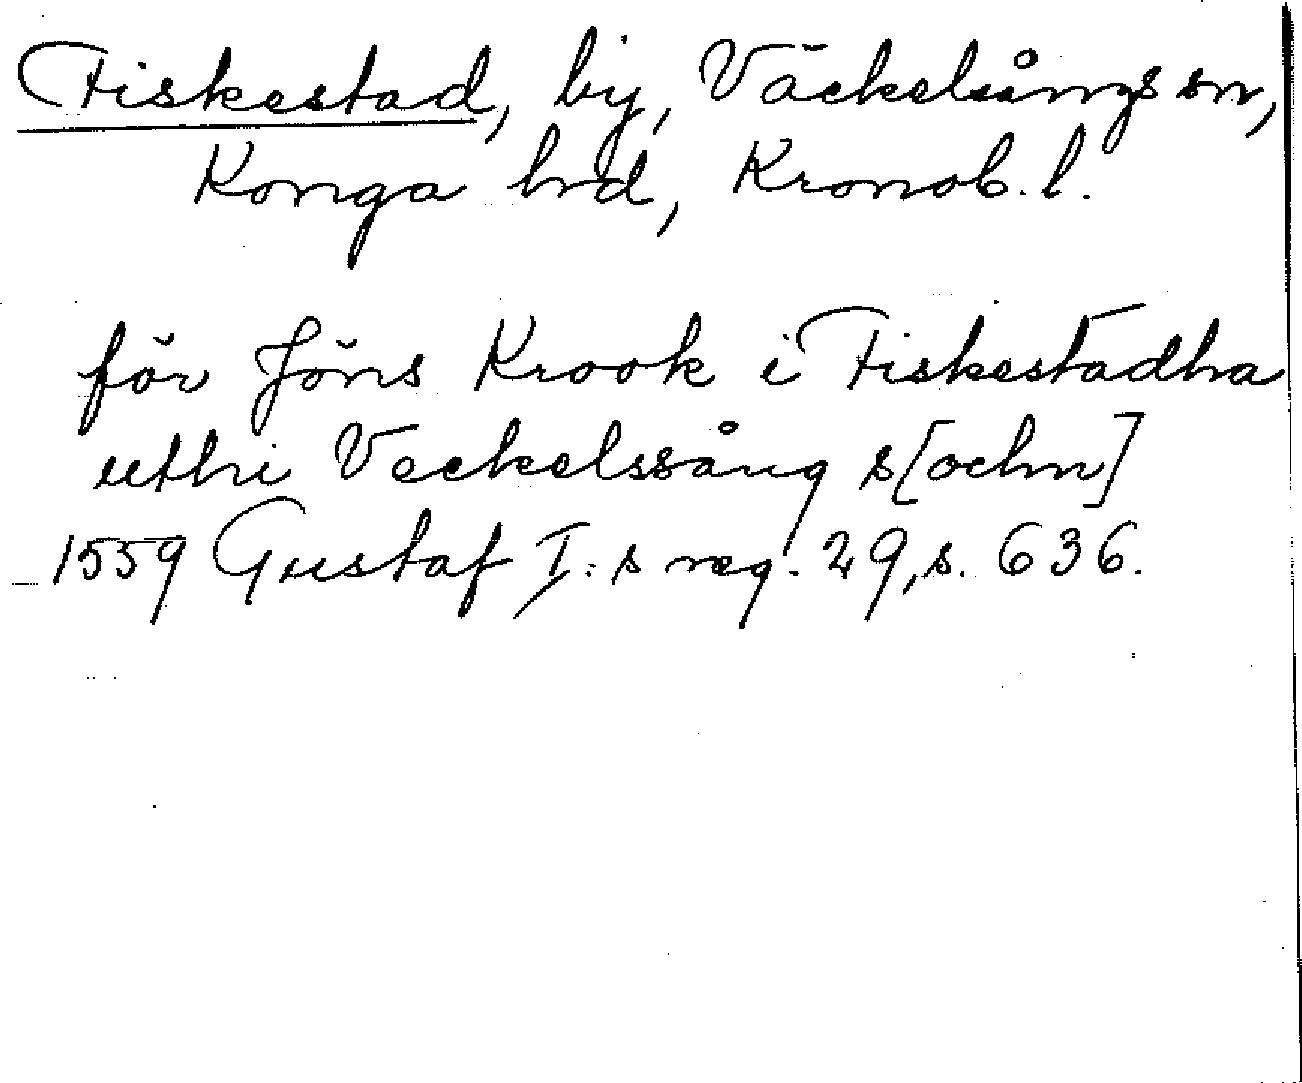 Fiskestad, by, Väckelsångs sn,
Konga hrd, Kronob. l.
för Jöns Krook i Fiskestadha
uthi Veckelssång s[ochn]
1559 Gustaf I:s reg. 29, s. 636.